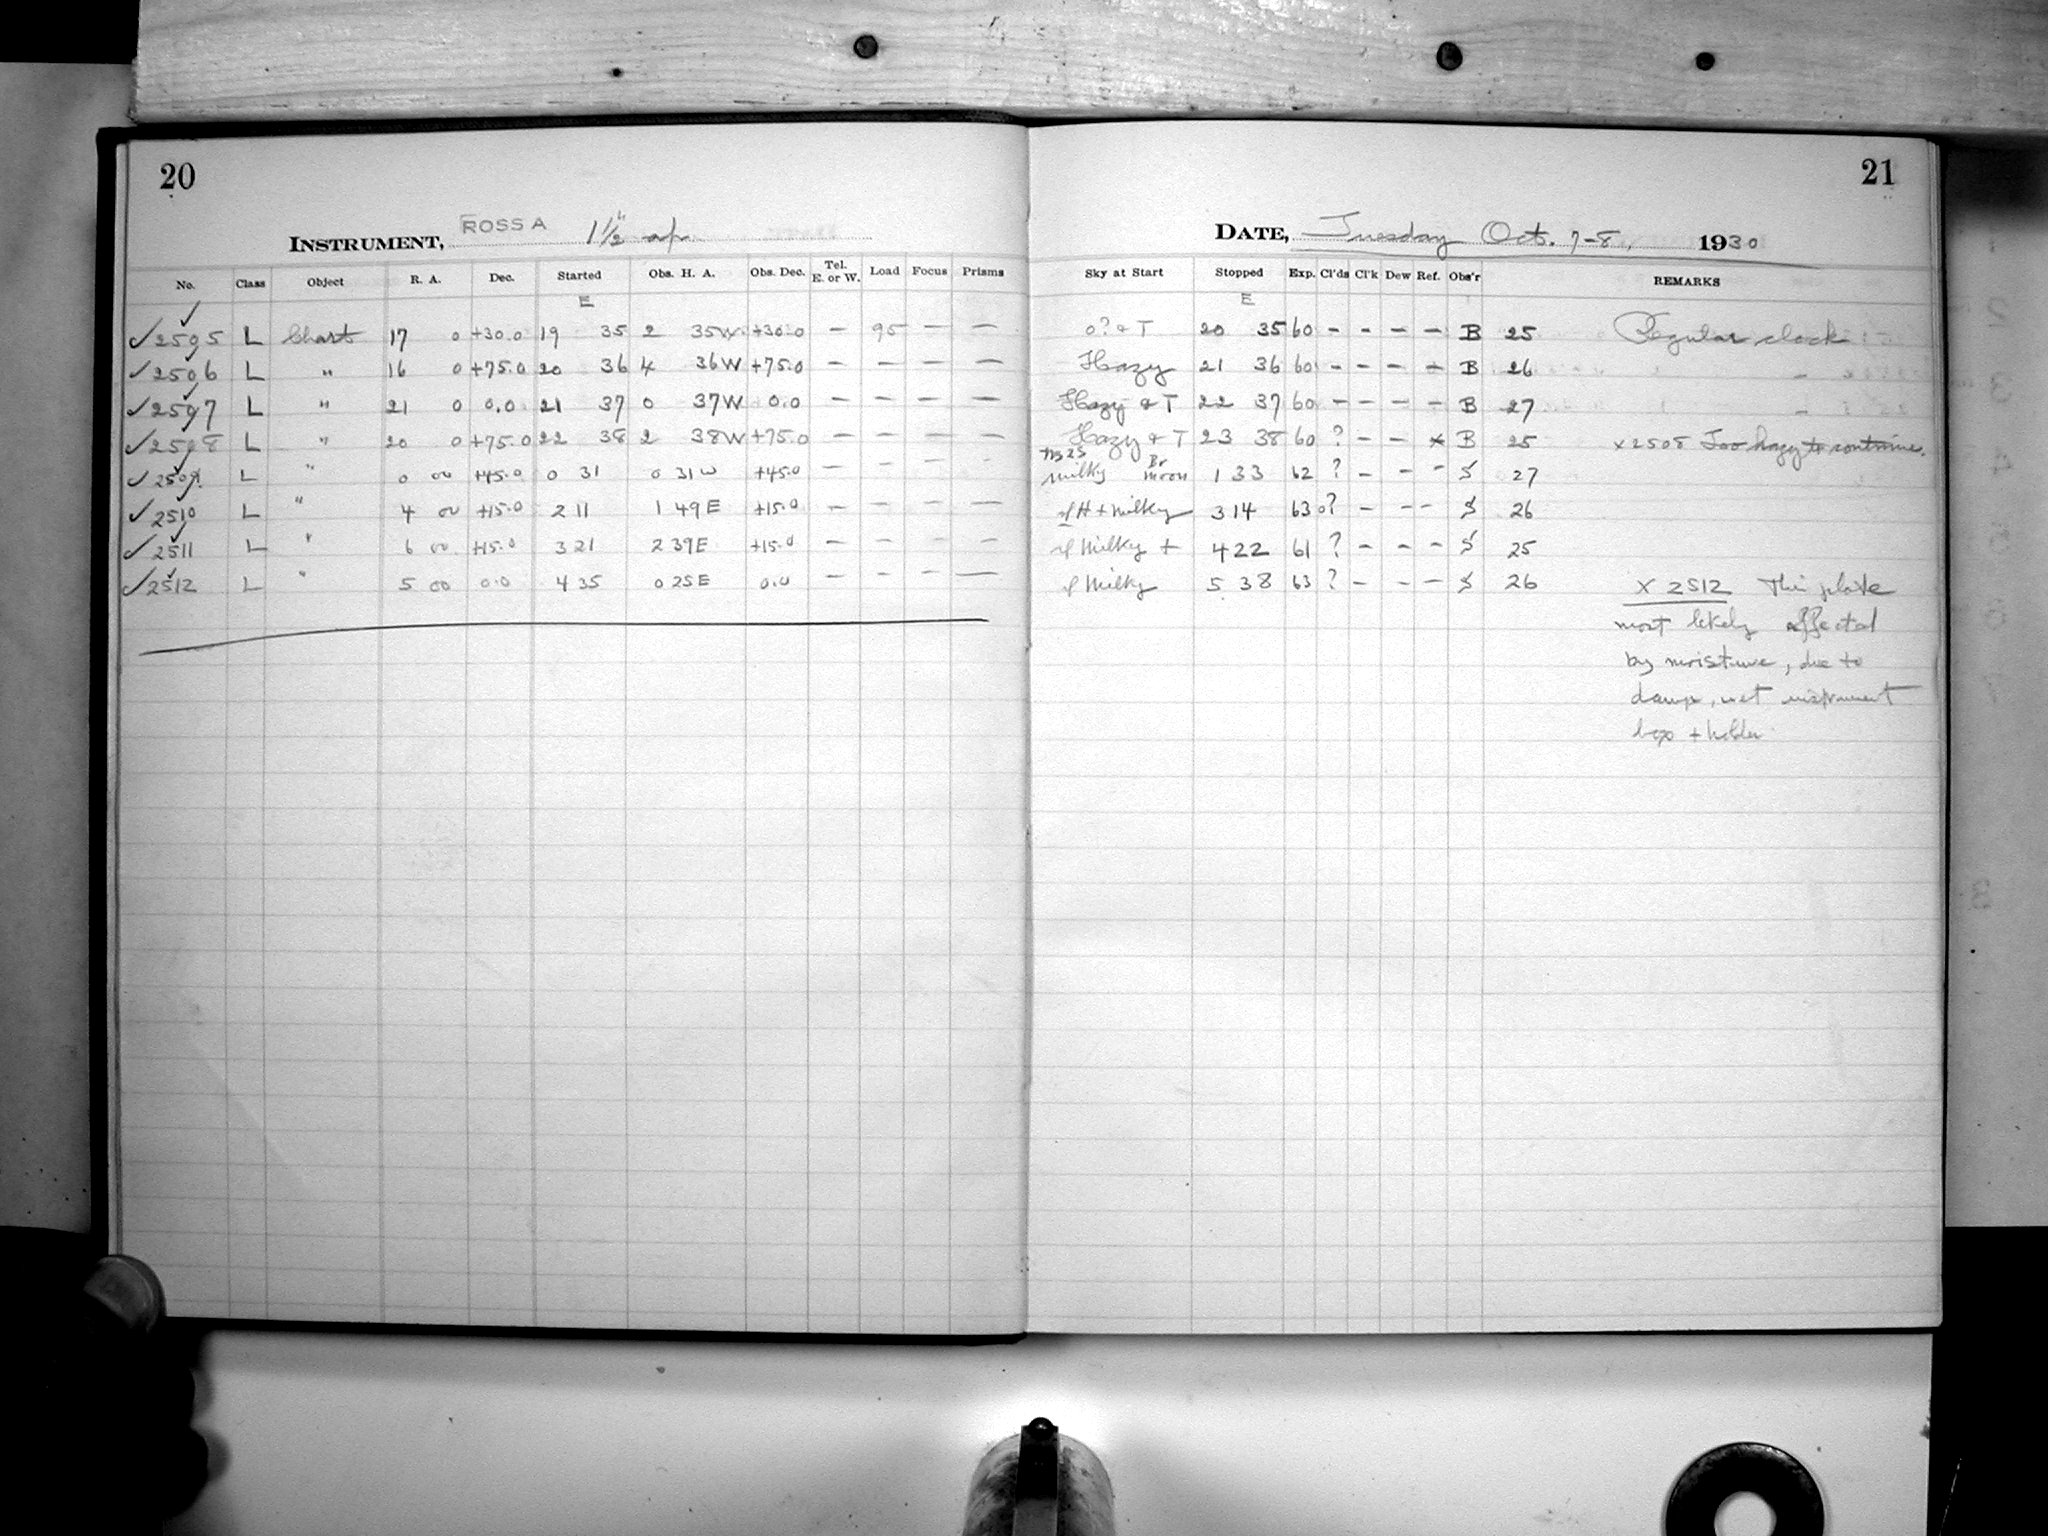 20
INSTRUMENT, ROSS A 1 1/2" ap.
No. Class Object R. A. Dec. Started Obs. H. A. Obs. Dec. Tel. E. or W. Load Focus Prisms
E
✓ 2505 L Chart 17 0 +30.0 19 35 2 35W +30.0 — 95 — —
✓ 2506 L " 16 0 +75.0 20 36 4 36W +75.0 — — — —
✓ 2507 L " 21 0 0.0 21 37 0 37W 0.0 — — — —
✓ 2508 L " 20 0 +75.0 22 38 2 38W +75.0 — — — —
✓ 2509 L " 0 00 +45.0 0 31 0 31W +45.0 — — — —
✓ 2510 L " 4 00 +15.0 2 11 1 49E +15.0 — — — —
✓ 2511 L " 6 00 +15.0 3 21 2 39E +15.0 — — — —
✓ 2512 L " 5 00 0.0 4 35 0 25E 0.0 — — — —
21
DATE, Tuesday Oct. 7-8, 1930
Sky at Start Stopped Exp. Cl'ds Cl'k Dew Ref. Obs'r REMARKS
E
0? & T 20 35 60 - - - - B 25 Regular clock
Hazy 21 36 60 - - - - B 26
Hazy & T 22 37 60 - - - - B 27
Hazy & T 23 38 60 ? - - x B 25 x 2508 Too hazy to continue.
milky Br moon 1 33 62 ? - - - S 27
H + milky 3 14 63 0? - - - S 26
Milky + 4 22 61 ? - - - S 25
Milky 5 38 63 ? - - - S 26 X 2512 This plate
most likely affected
by moisture, due to
damp, wet instrument
box + holder